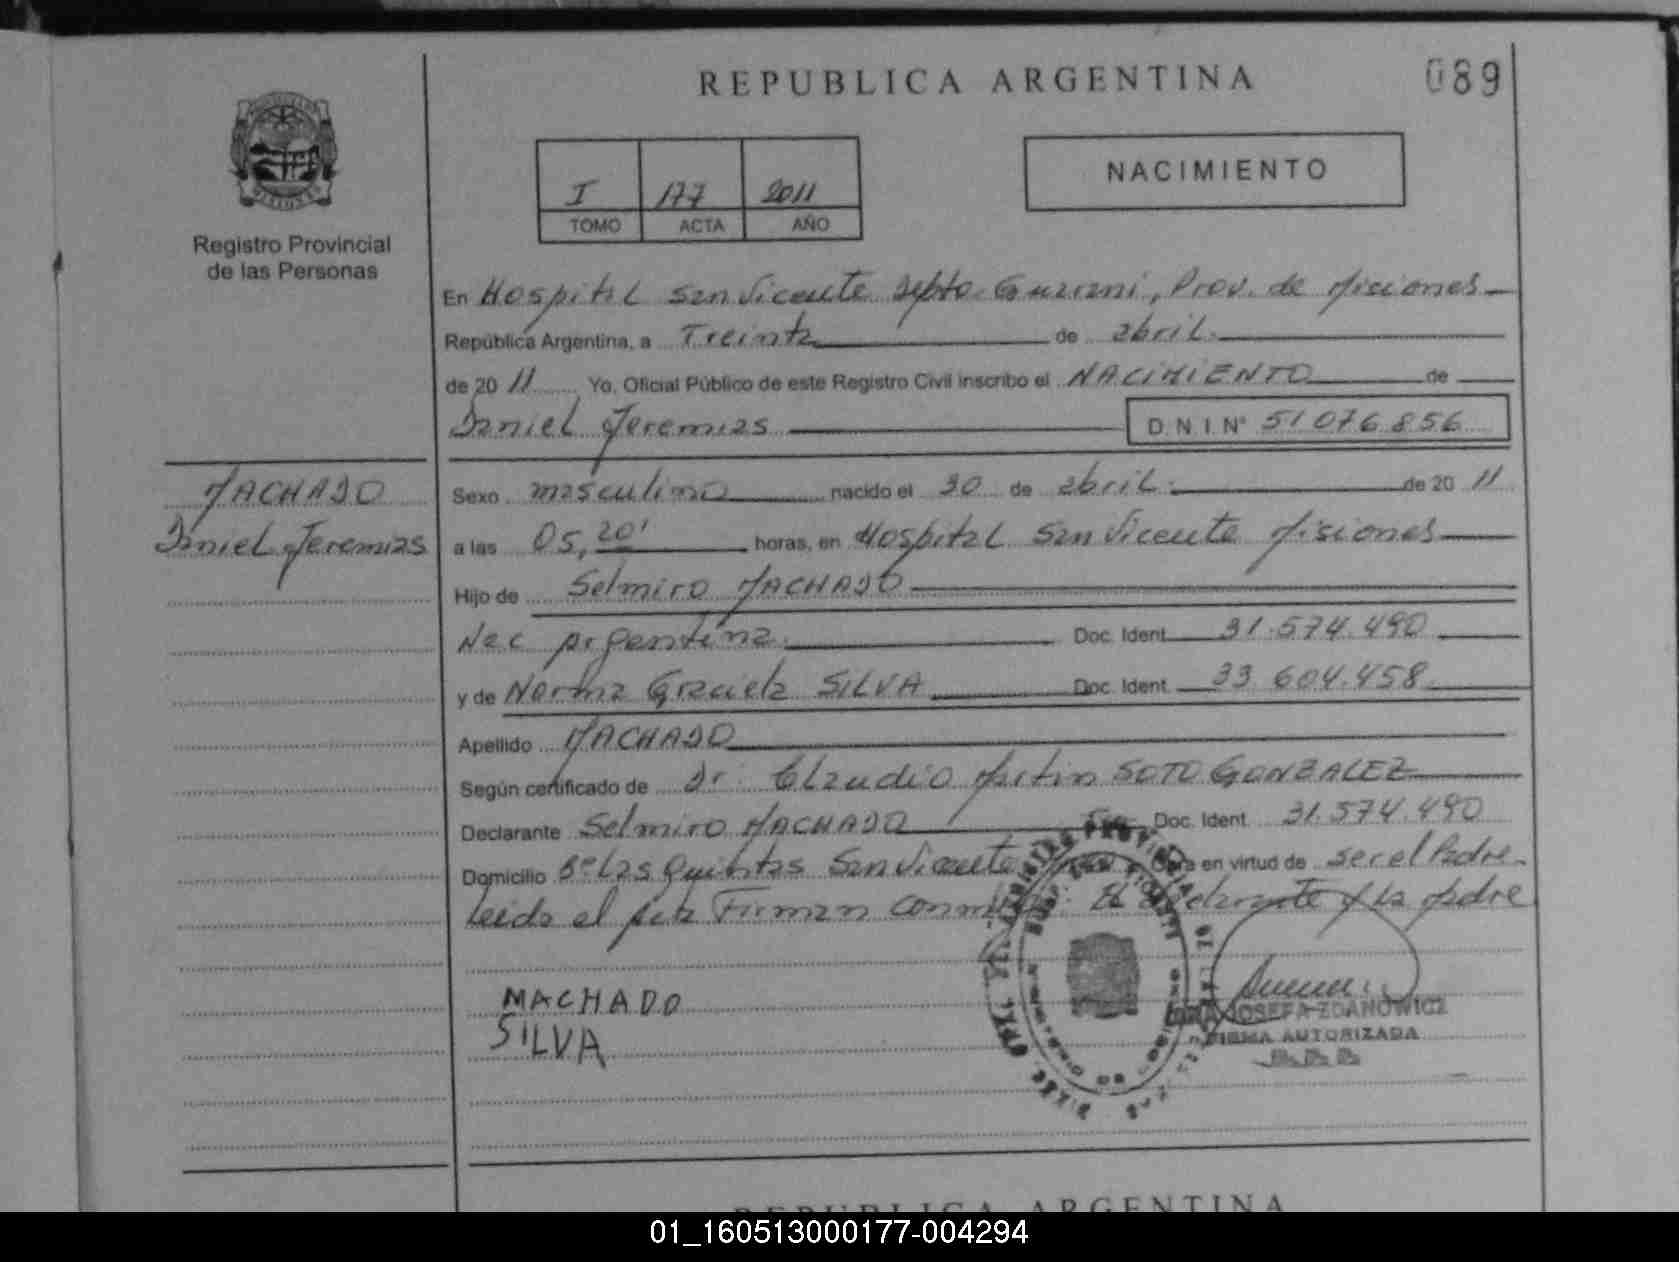 REPUBLICA ARGENTINA
089
Registro Provincial
de las Personas
I 177 2011
TOMO ACTA AÑO
NACIMIENTO
En Hospital San Vicente Dpto. Guarani, Prov. de Misiones
República Argentina, a Treinta de abril.
de 20 11 Yo, Oficial Público de este Registro Civil inscribo el NACIMIENTO de
Daniel Jeremias D.N.I. Nº 51 076 856
MACHADO
Daniel Jeremias
Sexo masculino nacido el 30 de abril. de 20 11
a las 05,20' horas, en Hospital San Vicente Misiones
Hijo de Selmiro MACHADO
Nac Argentina. Doc. Ident. 31.574.490
y de Norma Graciela SILVA Doc. Ident. 33.604.458
Apellido MACHADO
Según certificado de Dr. Claudio Martin SOTO GONZALEZ
Declarante Selmiro MACHADO Doc. Ident. 31.574.490
Domicilio Bº Las Quintas San Vicente Obra en virtud de ser el Padre
Leida el Acta Firman El declarante y la Madre
MACHADO
SILVA
JOSEFA ZDANOWICZ
FIRMA AUTORIZADA
REPUBLICA ARGENTINA
01_160513000177-004294